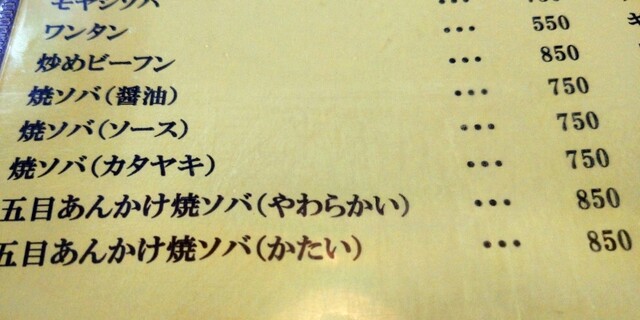 モヤシソバ
ワンタン ••• 550
炒めビーフン ••• 850
焼ソバ(醤油) ••• 750
焼ソバ(ソース) ••• 750
焼ソバ(カタヤキ) ••• 750
五目あんかけ焼ソバ(やわらかい) ••• 850
五目あんかけ焼ソバ(かたい) ••• 850